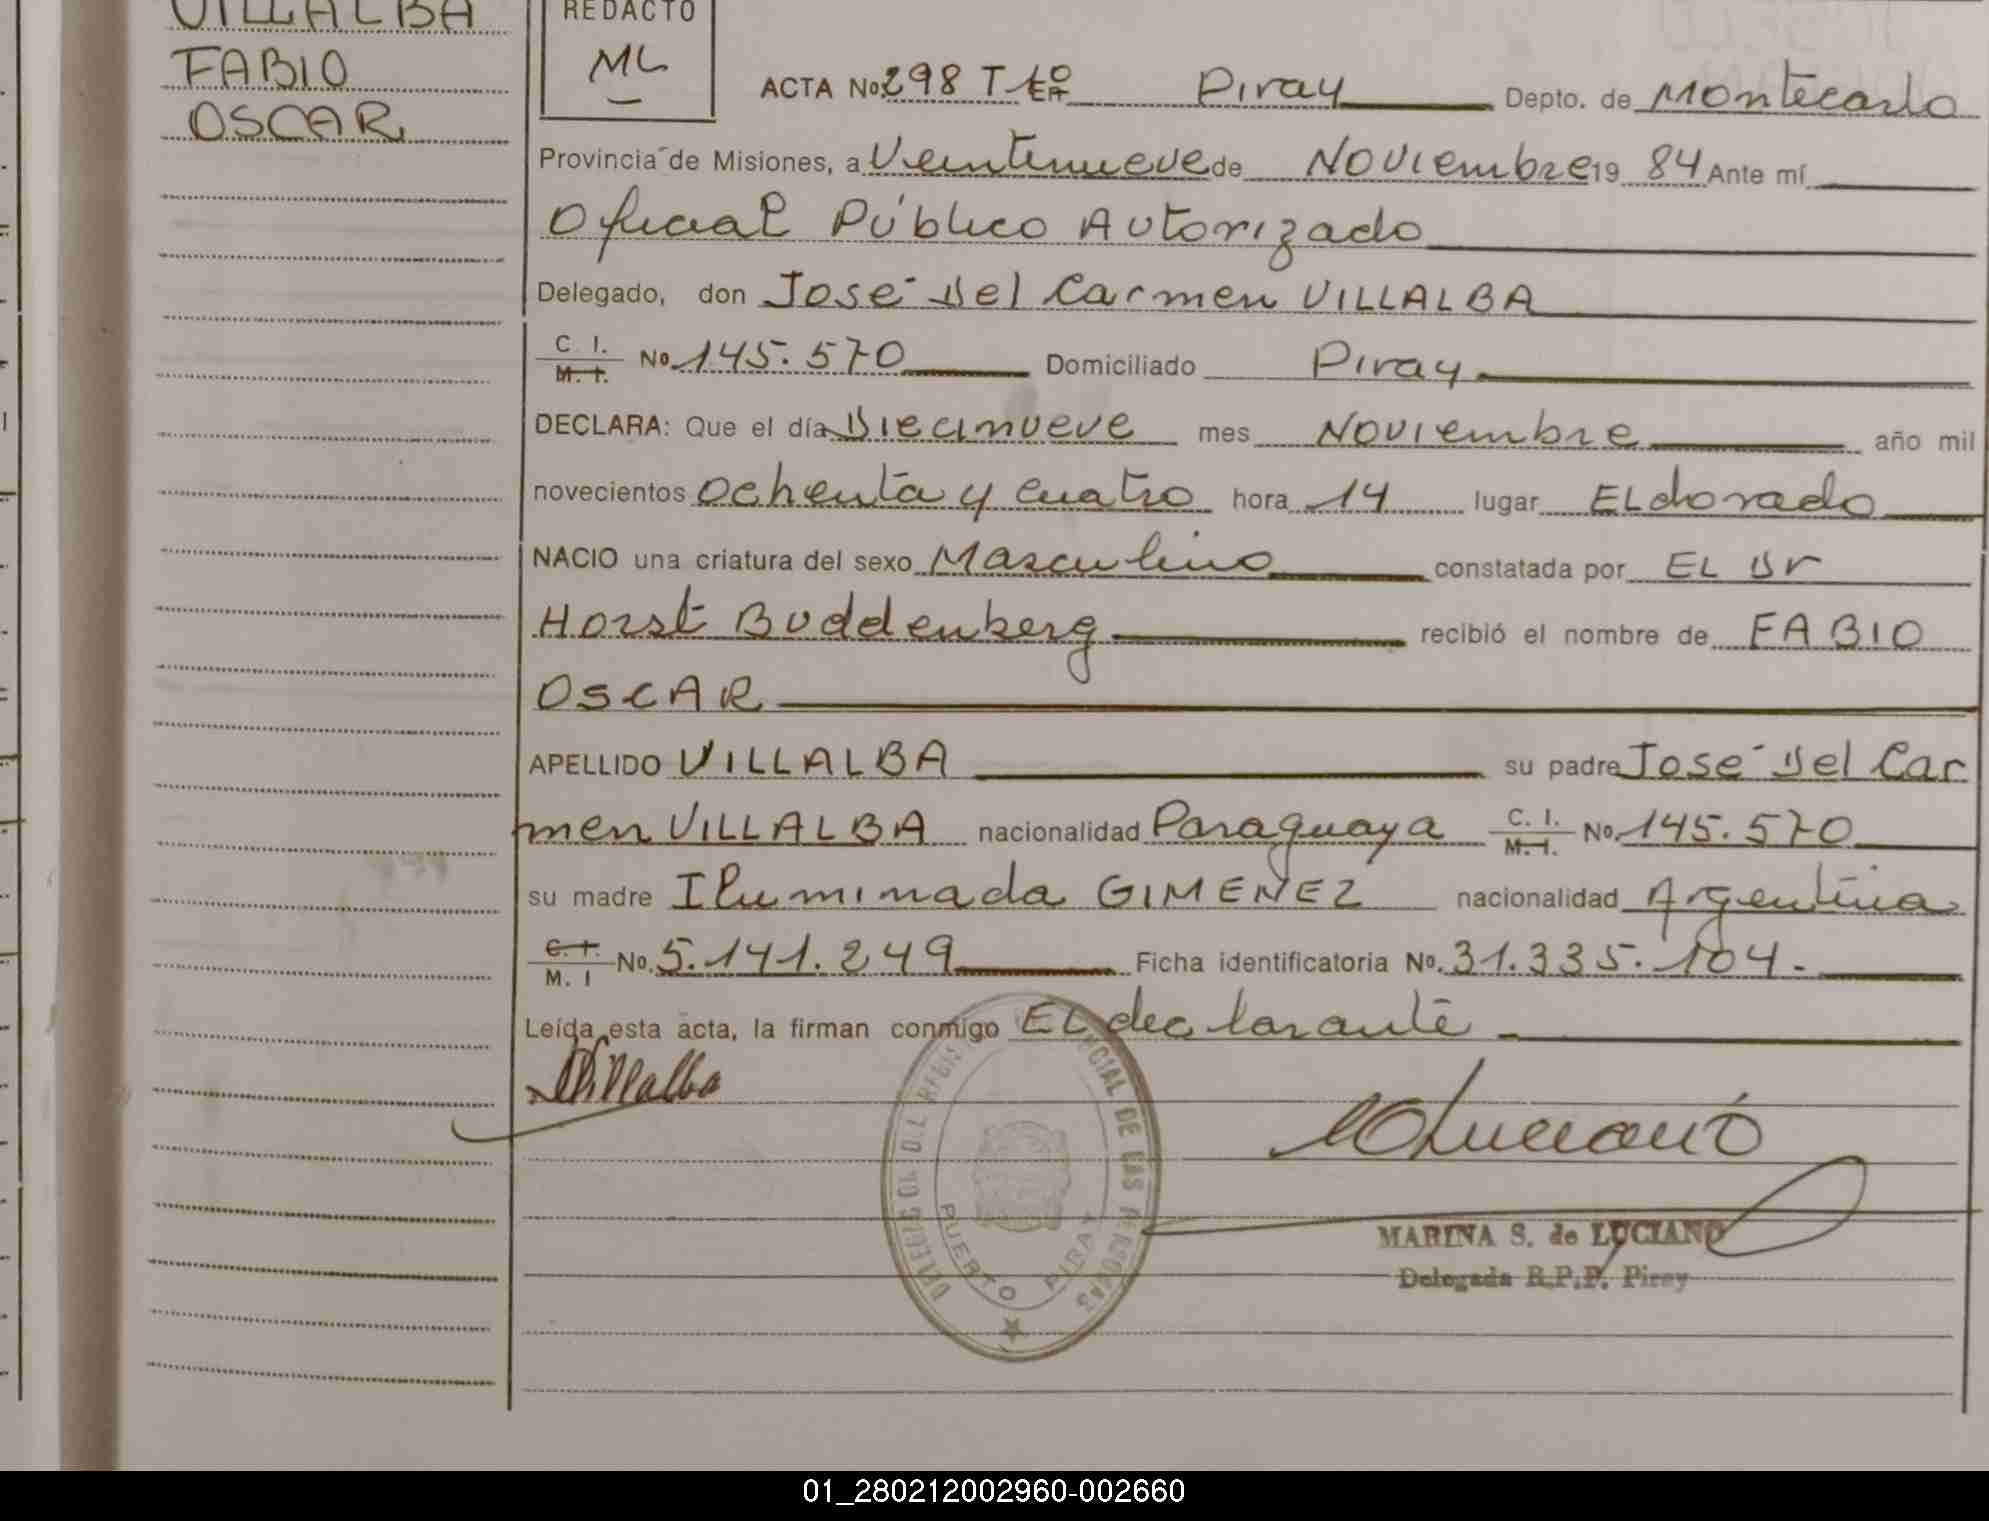 VILLALBA
FABIO
OSCAR
REDACTO
ML
ACTA No. 298 T tº En Piray Depto. de Montecarlo
Provincia de Misiones, a Veintinueve de Noviembre 19 84 Ante mí
Oficial Público Autorizado
Delegado, don José Del Carmen VILLALBA
C. I. M. I. No. 145.570 Domiciliado Piray
DECLARA: Que el día Diecinueve mes Noviembre año mil
novecientos ochenta y cuatro hora 14 lugar ELdorado
NACIO una criatura del sexo Masculino constatada por EL Dr
Horst Buddenberg recibió el nombre de FABIO
OSCAR
APELLIDO VILLALBA su padre José Del Car
men VILLALBA nacionalidad Paraguaya C. I. M. I. No. 145.570
su madre Iluminada GIMENEZ nacionalidad Argentina
C. I. M. I No. 5.141.249 Ficha identificatoria No. 31.335.104.-
Leída esta acta, la firman conmigo EL declarante
Villalba
DELEGACION DEL REGISTRO PROVINCIAL DE LAS PERSONAS
PUERTO PIRAY
MARINA S. de LUCIANO
Delegada R.P.P. Piray
01_280212002960-002660